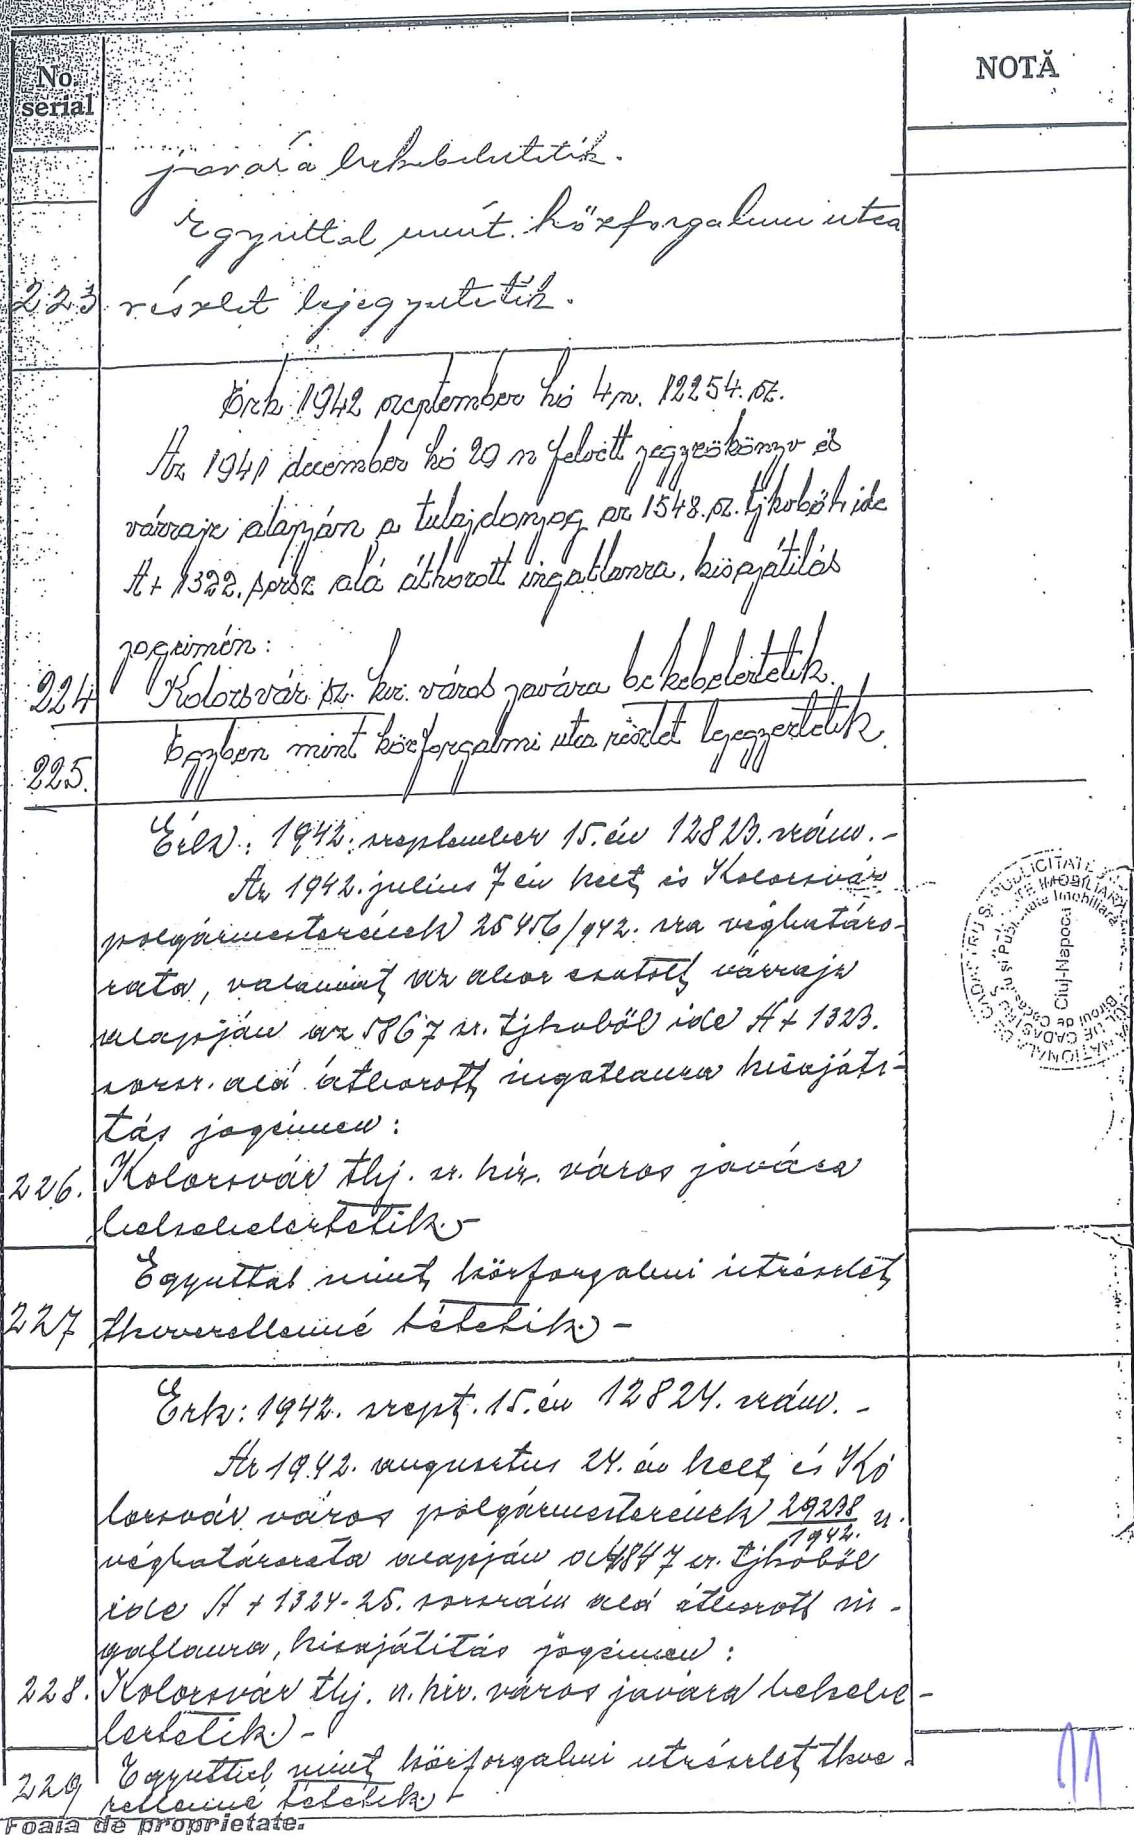 No. serial
NOTĂ
javára bekebeleztetik.
Egyuttal mint közforgalmu utca
223 részlet bejegyeztetik.
Érk 1942 szeptember hó 4n. 12254. sz.
Az 1941 december hó 29 n felvett jegyzőkönyv és
vázrajz alapján a tulajdonjog az 1548. sz. tjkvből ide
A+ 1322. sorsz alá áthozott ingatlanra, kisajátitás
jogcimén:
224 Kolozsvár sz. kir. város javára bekebeleztetik.
225. Egyben mint közforgalmi utca részlet bejegyeztetik.
Érk: 1942. szeptember 15. én 12823. szám. -
Az 1942. julius 7 én kelt és Kolozsvár
polgármesterének 25456/942. sza véghatáro-
zata, valamint az ahoz csatolt vázrajz
alapján az 5867 sz. tjkvből ide A + 1323.
sorsz. alá áthozott ingatlanra kisajáti-
tás jogcimen:
226. Kolozsvár thj. sz. kir. város javára
bekebeleztetik. -
Egyuttal mint közforgalmi utrészlet
227 tkvezellenné tétetik. -
Érk: 1942. szept. 15. én 12824. szám. -
Az 1942. augusztus 24. én kelt és Ko
lozsvár város polgármesterének 29238/1942. sz.
véghatározata alapján a 4847 sz. tjkvből
ide A + 1324-25. sorszám alá áthozott in-
gatlanra, kisajátitás jogcimen:
228. Kolozsvár thj. sz. kir. város javára bekebe-
leztetik. -
229 Egyuttal mint közforgalmi utrészlet tkve-
zellenné tétetik. -
Foaia de proprietate.
11
Cluj-Napoca